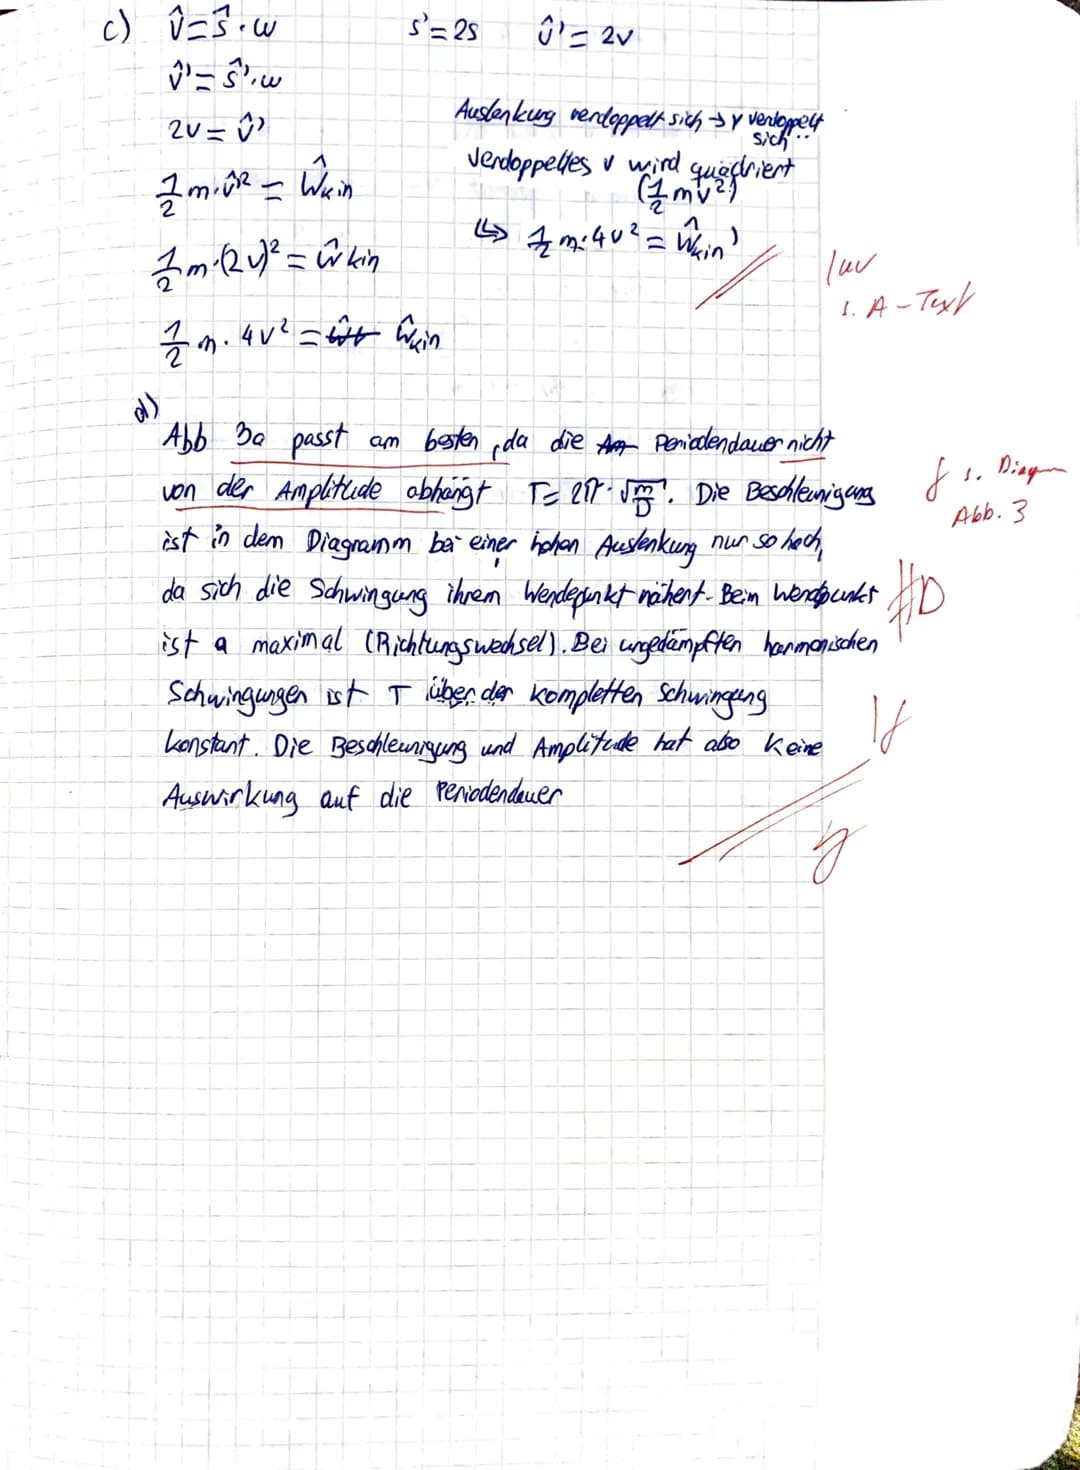 c) v̂ = ŝ · ω    s' = 2s    v̂' = 2v
v̂' = ŝ' · ω
Auslenkung verdoppelt sich → v verdoppelt sich
2v = v̂'
Verdoppeltes v wird quadriert
(1/2 mv²)
1/2 m · v̂² = Ŵkin
↳ 1/2 m · 4v² = Ŵkin'
1/2 m · (2v)² = Ŵkin
s. A-Text
1/2 m · 4v² = Ŵkin
d)
Abb 3a passt am besten, da die Periodendauer nicht
von der Amplitude abhängt T = 2π · √m/D. Die Beschleunigung
f s. Diagr
Abb. 3
ist in dem Diagramm bei einer hohen Auslenkung nur so hoch,
da sich die Schwingung ihrem Wendepunkt nähert. Beim Wendpunkt
ist a maximal (Richtungswechsel). Bei ungedämpften harmonischen
Schwingungen ist T über der kompletten Schwingung
konstant. Die Beschleunigung und Amplitude hat also keine
Auswirkung auf die Periodendauer